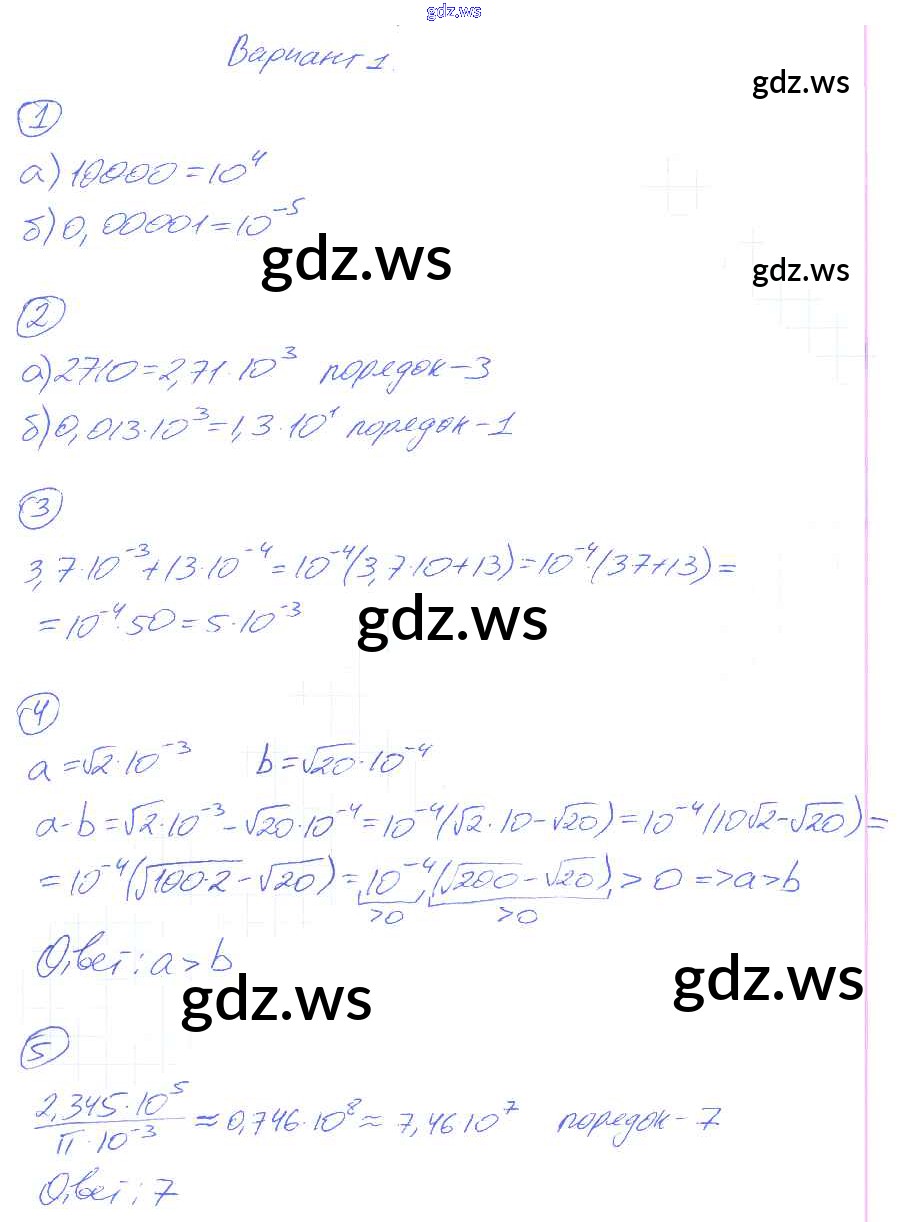 gdz.ws
Вариант 1.
gdz.ws
1
а) 10000 = 10⁴
б) 0,00001 = 10⁻⁵
gdz.ws
gdz.ws
2
а) 2710 = 2,71·10³ порядок - 3
б) 0,013·10³ = 1,3·10¹ порядок - 1
3
3,7·10⁻³ + 13·10⁻⁴ = 10⁻⁴(3,7·10 + 13) = 10⁻⁴·(37 + 13) =
= 10⁻⁴·50 = 5·10⁻³
gdz.ws
4
a = √2·10⁻³ b = √20·10⁻⁴
a - b = √2·10⁻³ - √20·10⁻⁴ = 10⁻⁴(√2·10 - √20) = 10⁻⁴(10√2 - √20) =
= 10⁻⁴(√100·2 - √20) = 10⁻⁴(√200 - √20) > 0 => a > b
>0 >0
Ответ: a > b
gdz.ws
gdz.ws
5
2,345·10⁵ / π·10⁻³ ≈ 0,746·10⁸ ≈ 7,46·10⁷ порядок - 7
Ответ: 7